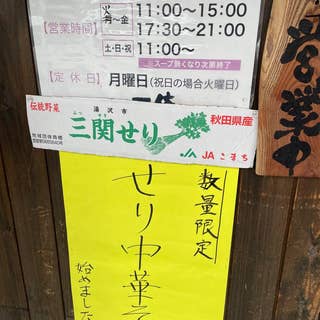 【営業時間】
火〜金 11:00〜15:00
17:30〜21:00
土・日・祝 11:00〜
※スープ無くなり次第終了
【定休日】月曜日(祝日の場合火曜日)
伝統野菜
湯沢市
みつ せき
三関せり
秋田県産
地域団体商標
JA JAこまち
数量限定
せり中華そ
始めました
営業中